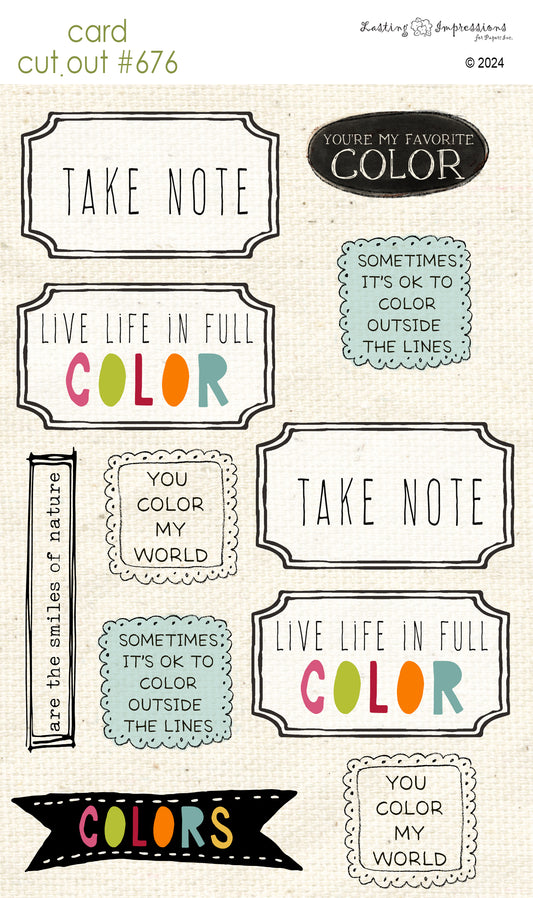 card
cut.out #676
Lasting Impressions
for Paper, Inc.
© 2024
TAKE NOTE
YOU'RE MY FAVORITE
COLOR
SOMETIMES
IT'S OK TO
COLOR
OUTSIDE
THE LINES
LIVE LIFE IN FULL
COLOR
are the smiles of nature
YOU
COLOR
MY
WORLD
TAKE NOTE
SOMETIMES
IT'S OK TO
COLOR
OUTSIDE
THE LINES
LIVE LIFE IN FULL
COLOR
COLORS
YOU
COLOR
MY
WORLD